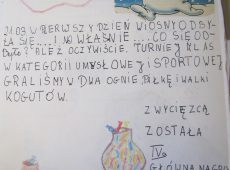 21.03 W PIERWSZY DZIEŃ WIOSNY ODBY-
ŁA SIĘ.... I NO WŁAŚNIE.... CO SIĘ OD-
BYŁO? ALEŻ OCZYWIŚCIE. TURNIEJ KLAS
W KATEGORII UMYSŁOWEJ I SPORTOWEJ
GRALIŚMY W DWA OGNIE, PIŁKĘ I WALKI
KOGUTÓW.
ZWYCIĘZCĄ
ZOSTAŁA
IV
GŁÓWNA NAGRO